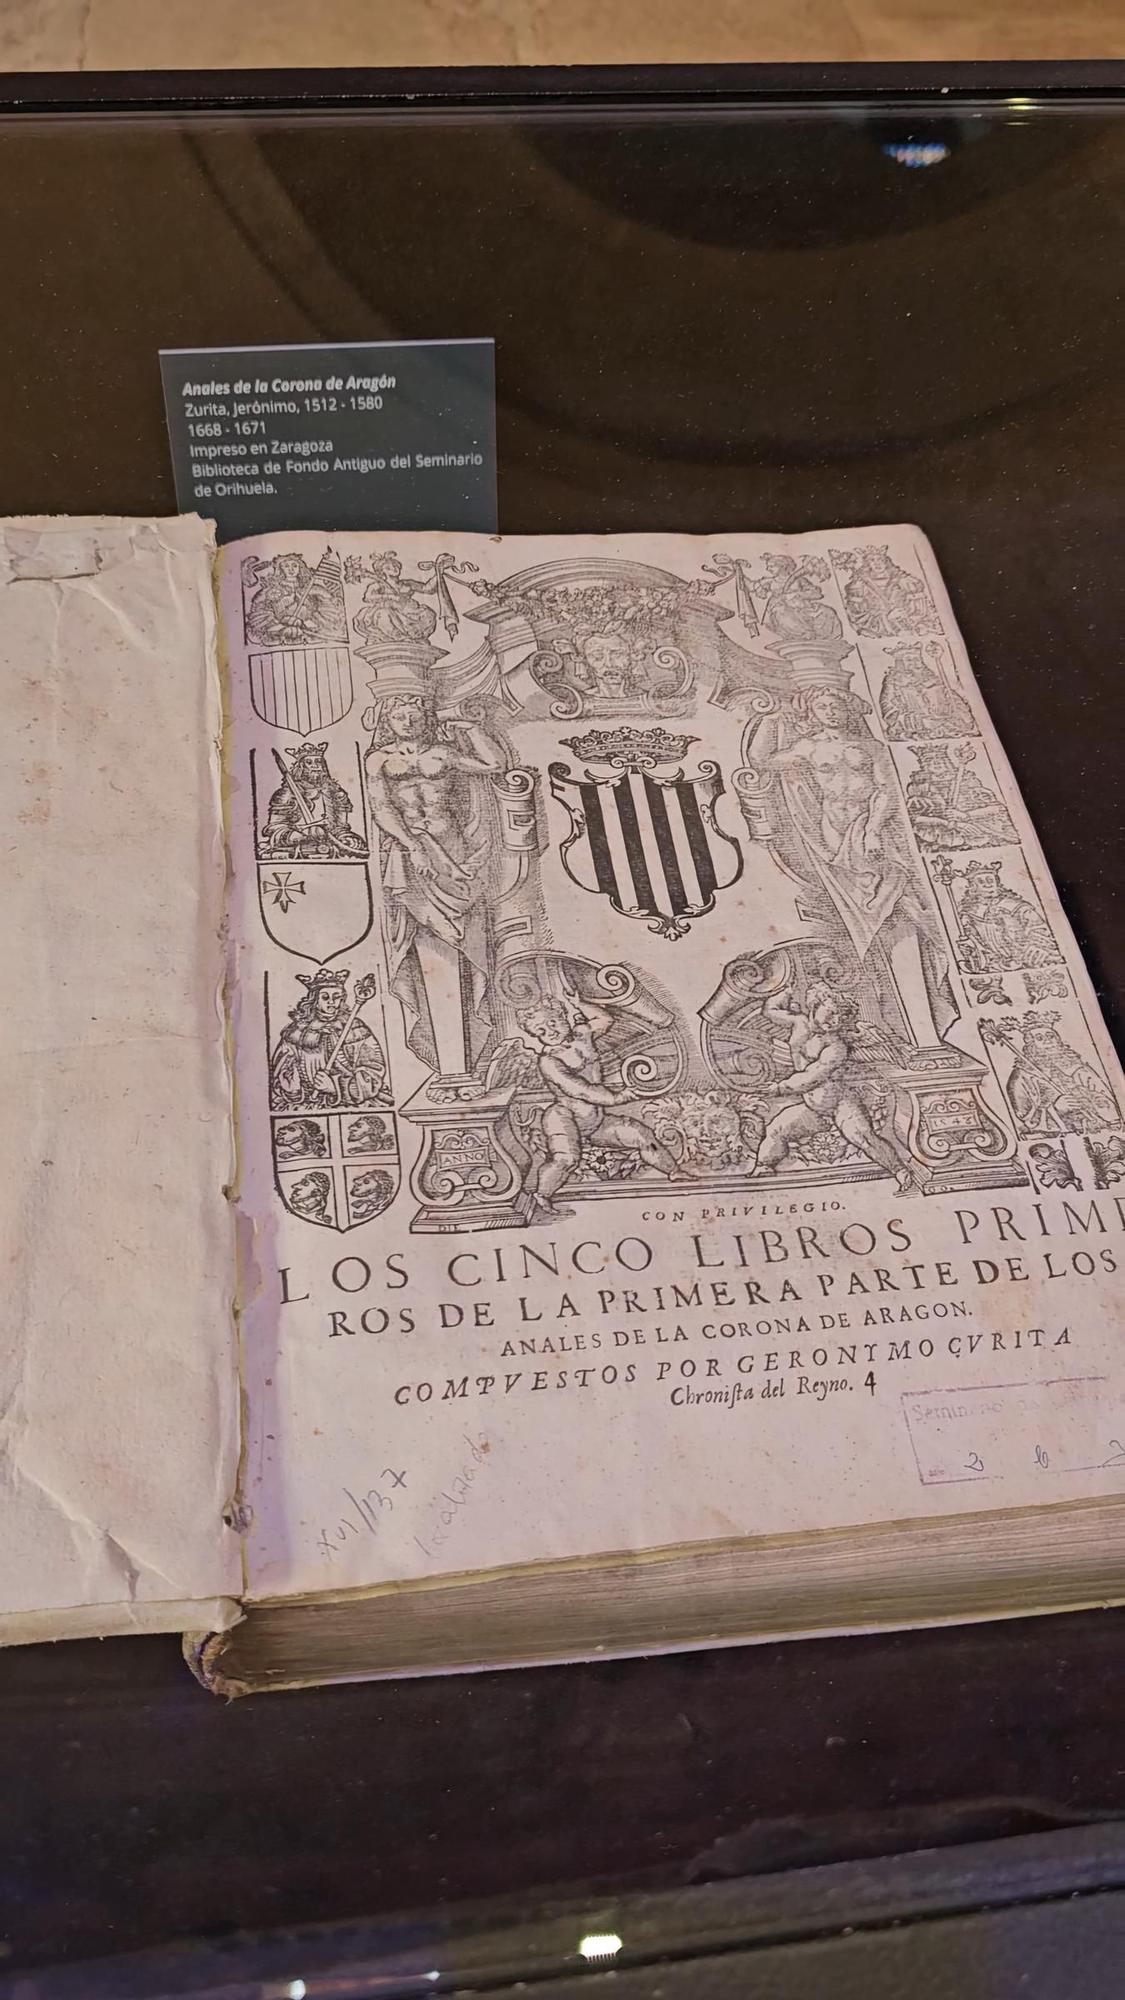 Anales de la Corona de Aragón
Zurita, Jerónimo, 1512 - 1580
1668 - 1671
Impreso en Zaragoza
Biblioteca de Fondo Antiguo del Seminario
de Orihuela.
ANNO
1548
DIE
CON PRIVILEGIO.
LOS CINCO LIBROS PRIME
ROS DE LA PRIMERA PARTE DE LOS
ANALES DE LA CORONA DE ARAGON.
COMPVESTOS POR GERONYMO ÇVRITA
Chroniſta del Reyno. 4
XVI/137
Seminario
2 6